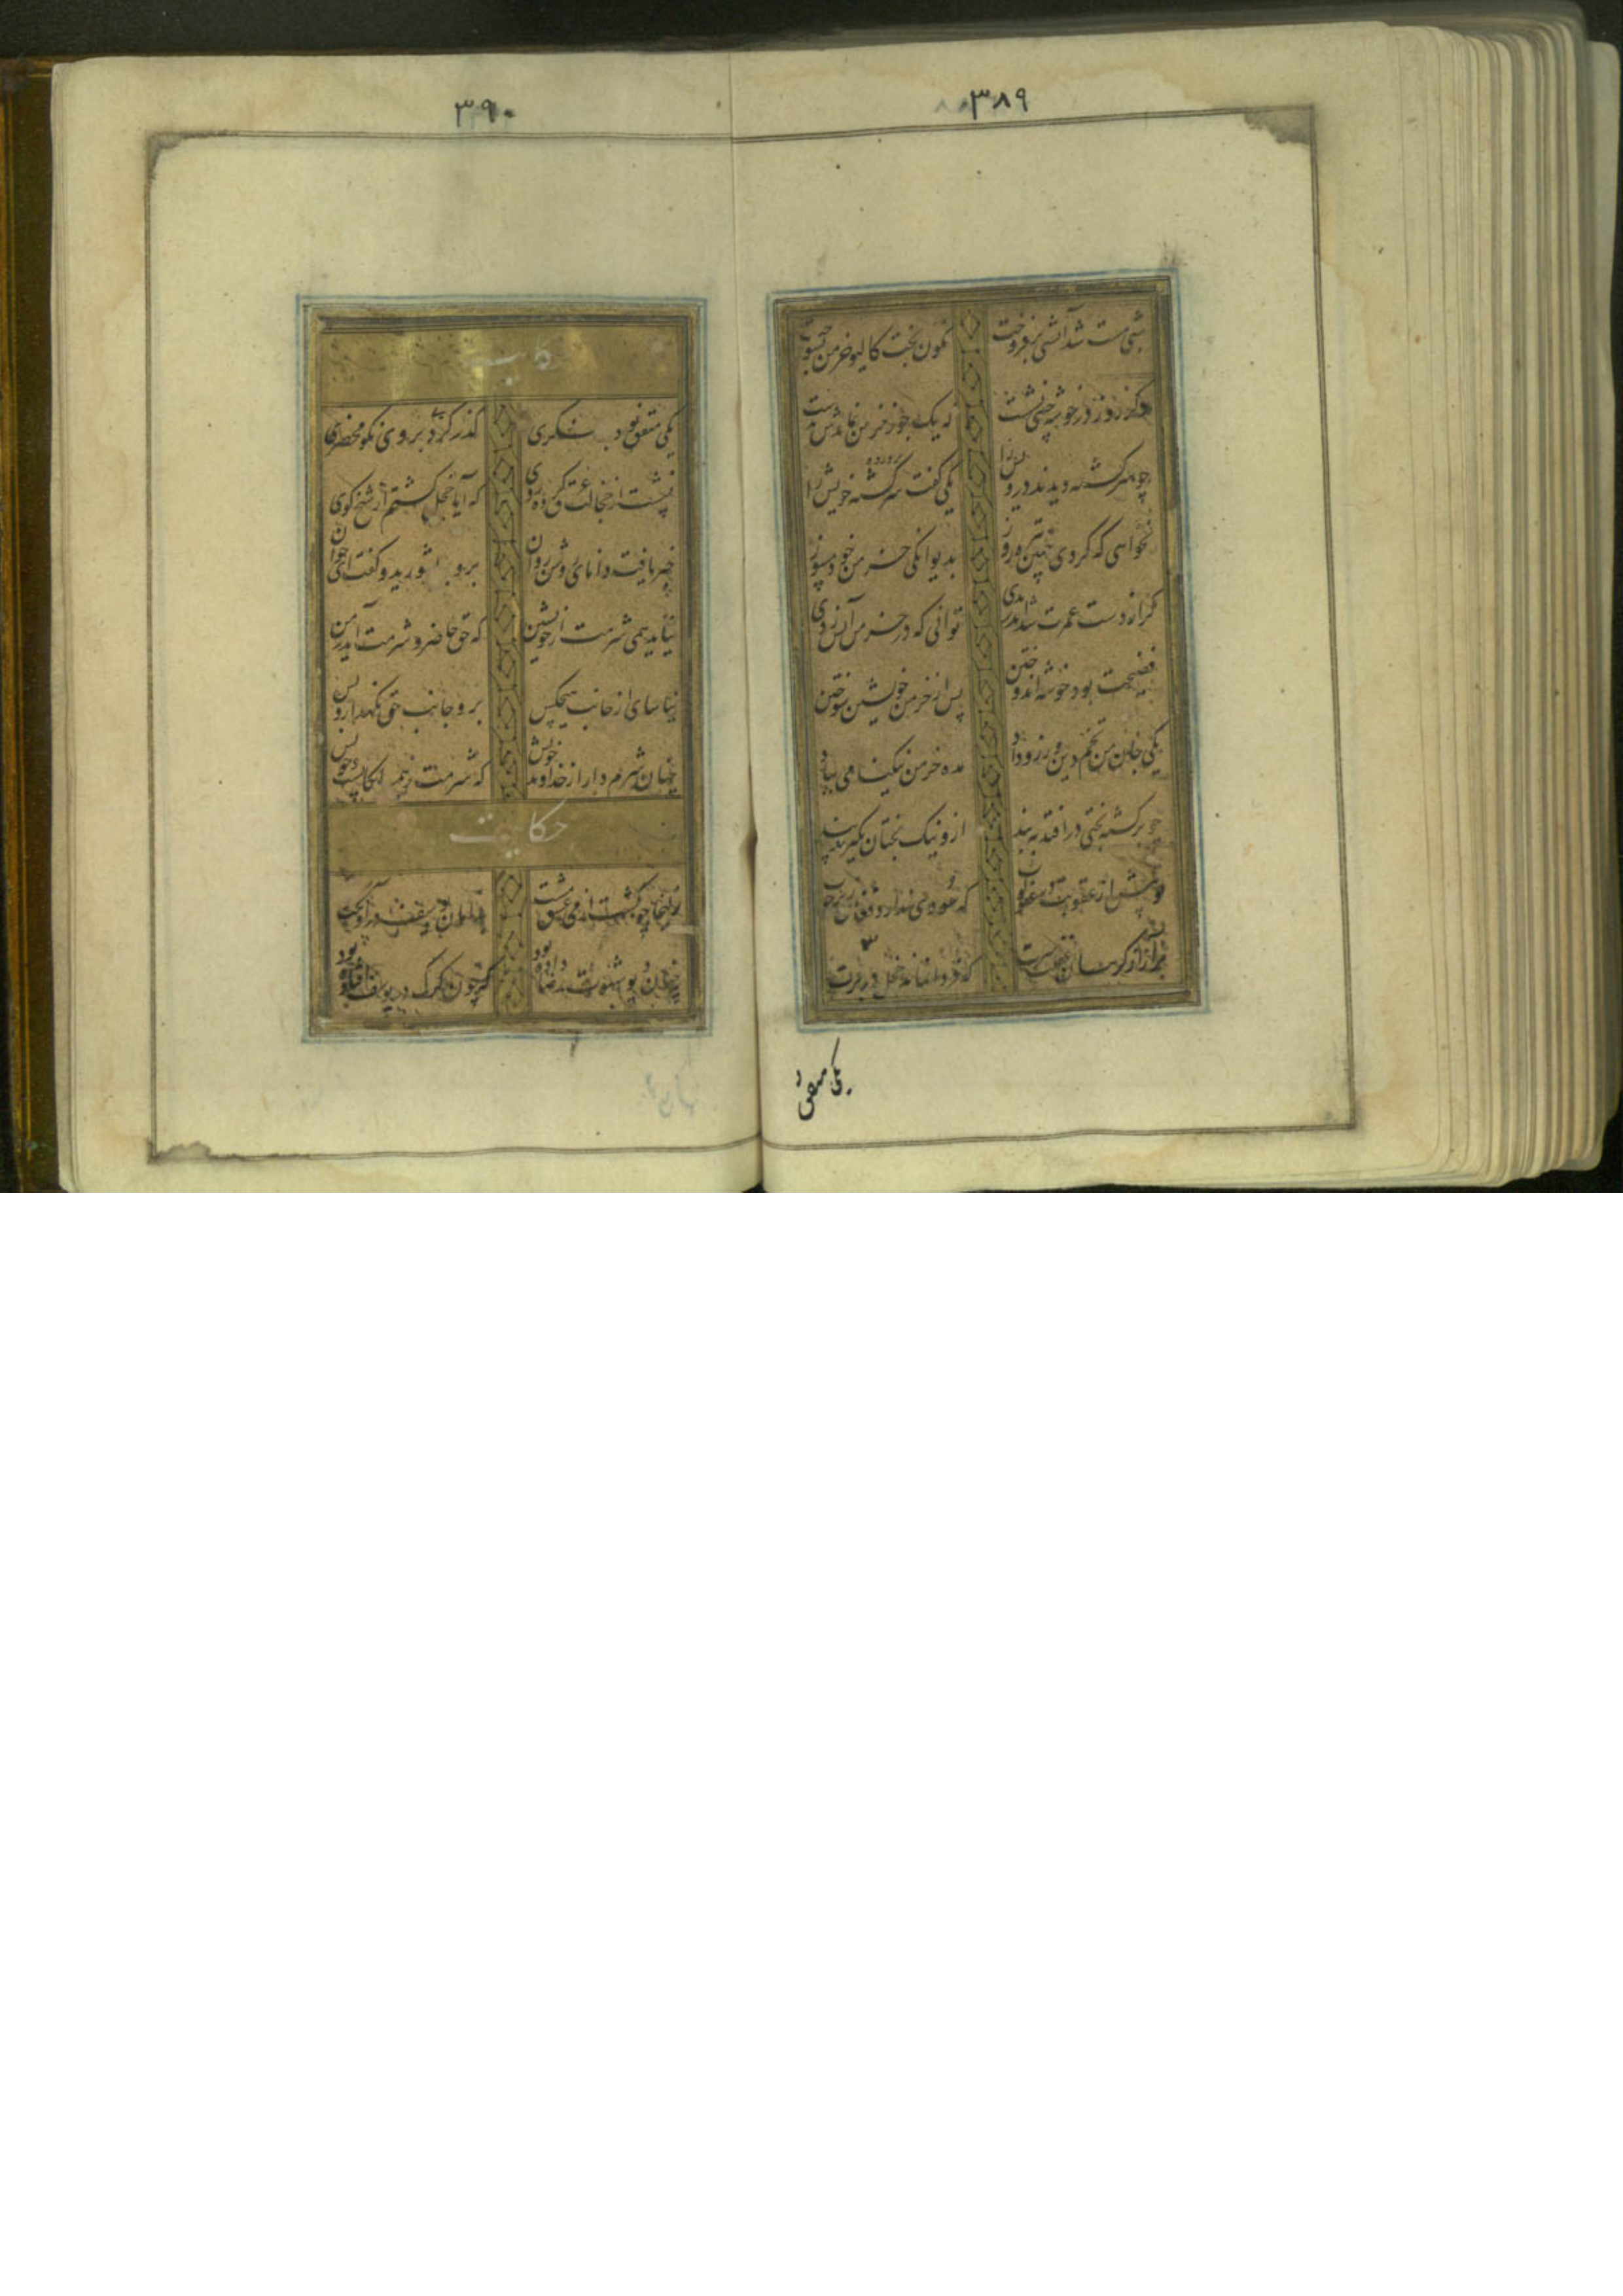 ۳۸۹
شبی مست شد آتشی برفروخت نگون بخت کالیو خرمن بسوخت
دگر روز در خوشه چینی نشست که یک جو ز خرمن نماندش بدست
چو سرگشته دیدند درویش را یکی گفت پرورده سرگشته خویش را
نخواهی که گردی چنین تیره روز بدیوانگی خرمن خود مسوز
گر از دست عمرت شد اندر بدی توانی که در خرمن آتش زدی
فضیحت بود خوشه اندوختن پس از خرمن خویشتن سوختن
مکن جان من تخم دین ورز و داد مده خرمن نیکنامی بباد
چو برگشته بختی در افتد به بند ازو نیک بختان بگیرند پند
تو پیش از عقوبت در عفو کوب که سودی ندارد فغان زیر چوب
برآر از گریبان غفلت سرت که فردا نماند خجل در برت
یکی متفق
۳۹۰
حکایت
یکی متفق بود بر منکری گذر کرد بر وی نکو محضری
نشست از خجالت عرق کرده روی که آیا خجل گشتم از شیخ کوی
خبر یافت دانای روشن روان برو بر بشورید و گفت ای جوان
نیاید همی شرمت از خویشتن که حق حاضر و شرمت آید ز من
نیاسای از جانب هیچکس برو جانب حق نگهدار و بس
چنان شرم دار از خداوند خویش که شرمت ز همسایگانست و خویش
حکایت
زلیخا چو گشت از می عشق مست بدامان یوسف در آویخت دست
چنان دیو شهوت رضا داده بود که چون گرگ در یوسف افتاده بود